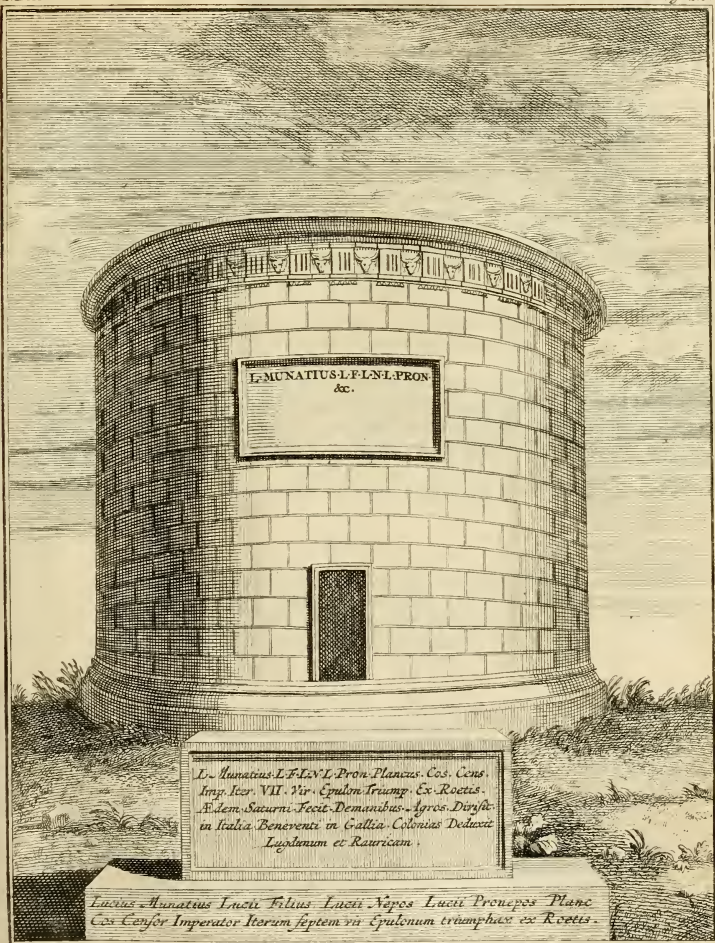 L·MUNATIUS·L·F·L·N·L·PRON·
&c.
L·Munatius·L·F·L·N·L·Pron·Plancus·Cos·Cens.
Imp·Iter·VII·Vir·Epulon·Triump·Ex·Roetis.
Ædem·Saturni·Fecit·Demanibus·Agros·Divisit·
in Italia Beneventi in Gallia·Colonias Deduxit
Lugdunum et Rauricam.
Lucius Munatius Lucii Filius Lucii Nepos Lucii Pronepos Planc
Cos Censor Imperator Iterum septem vir Epulonum triumphax ex Roetis.